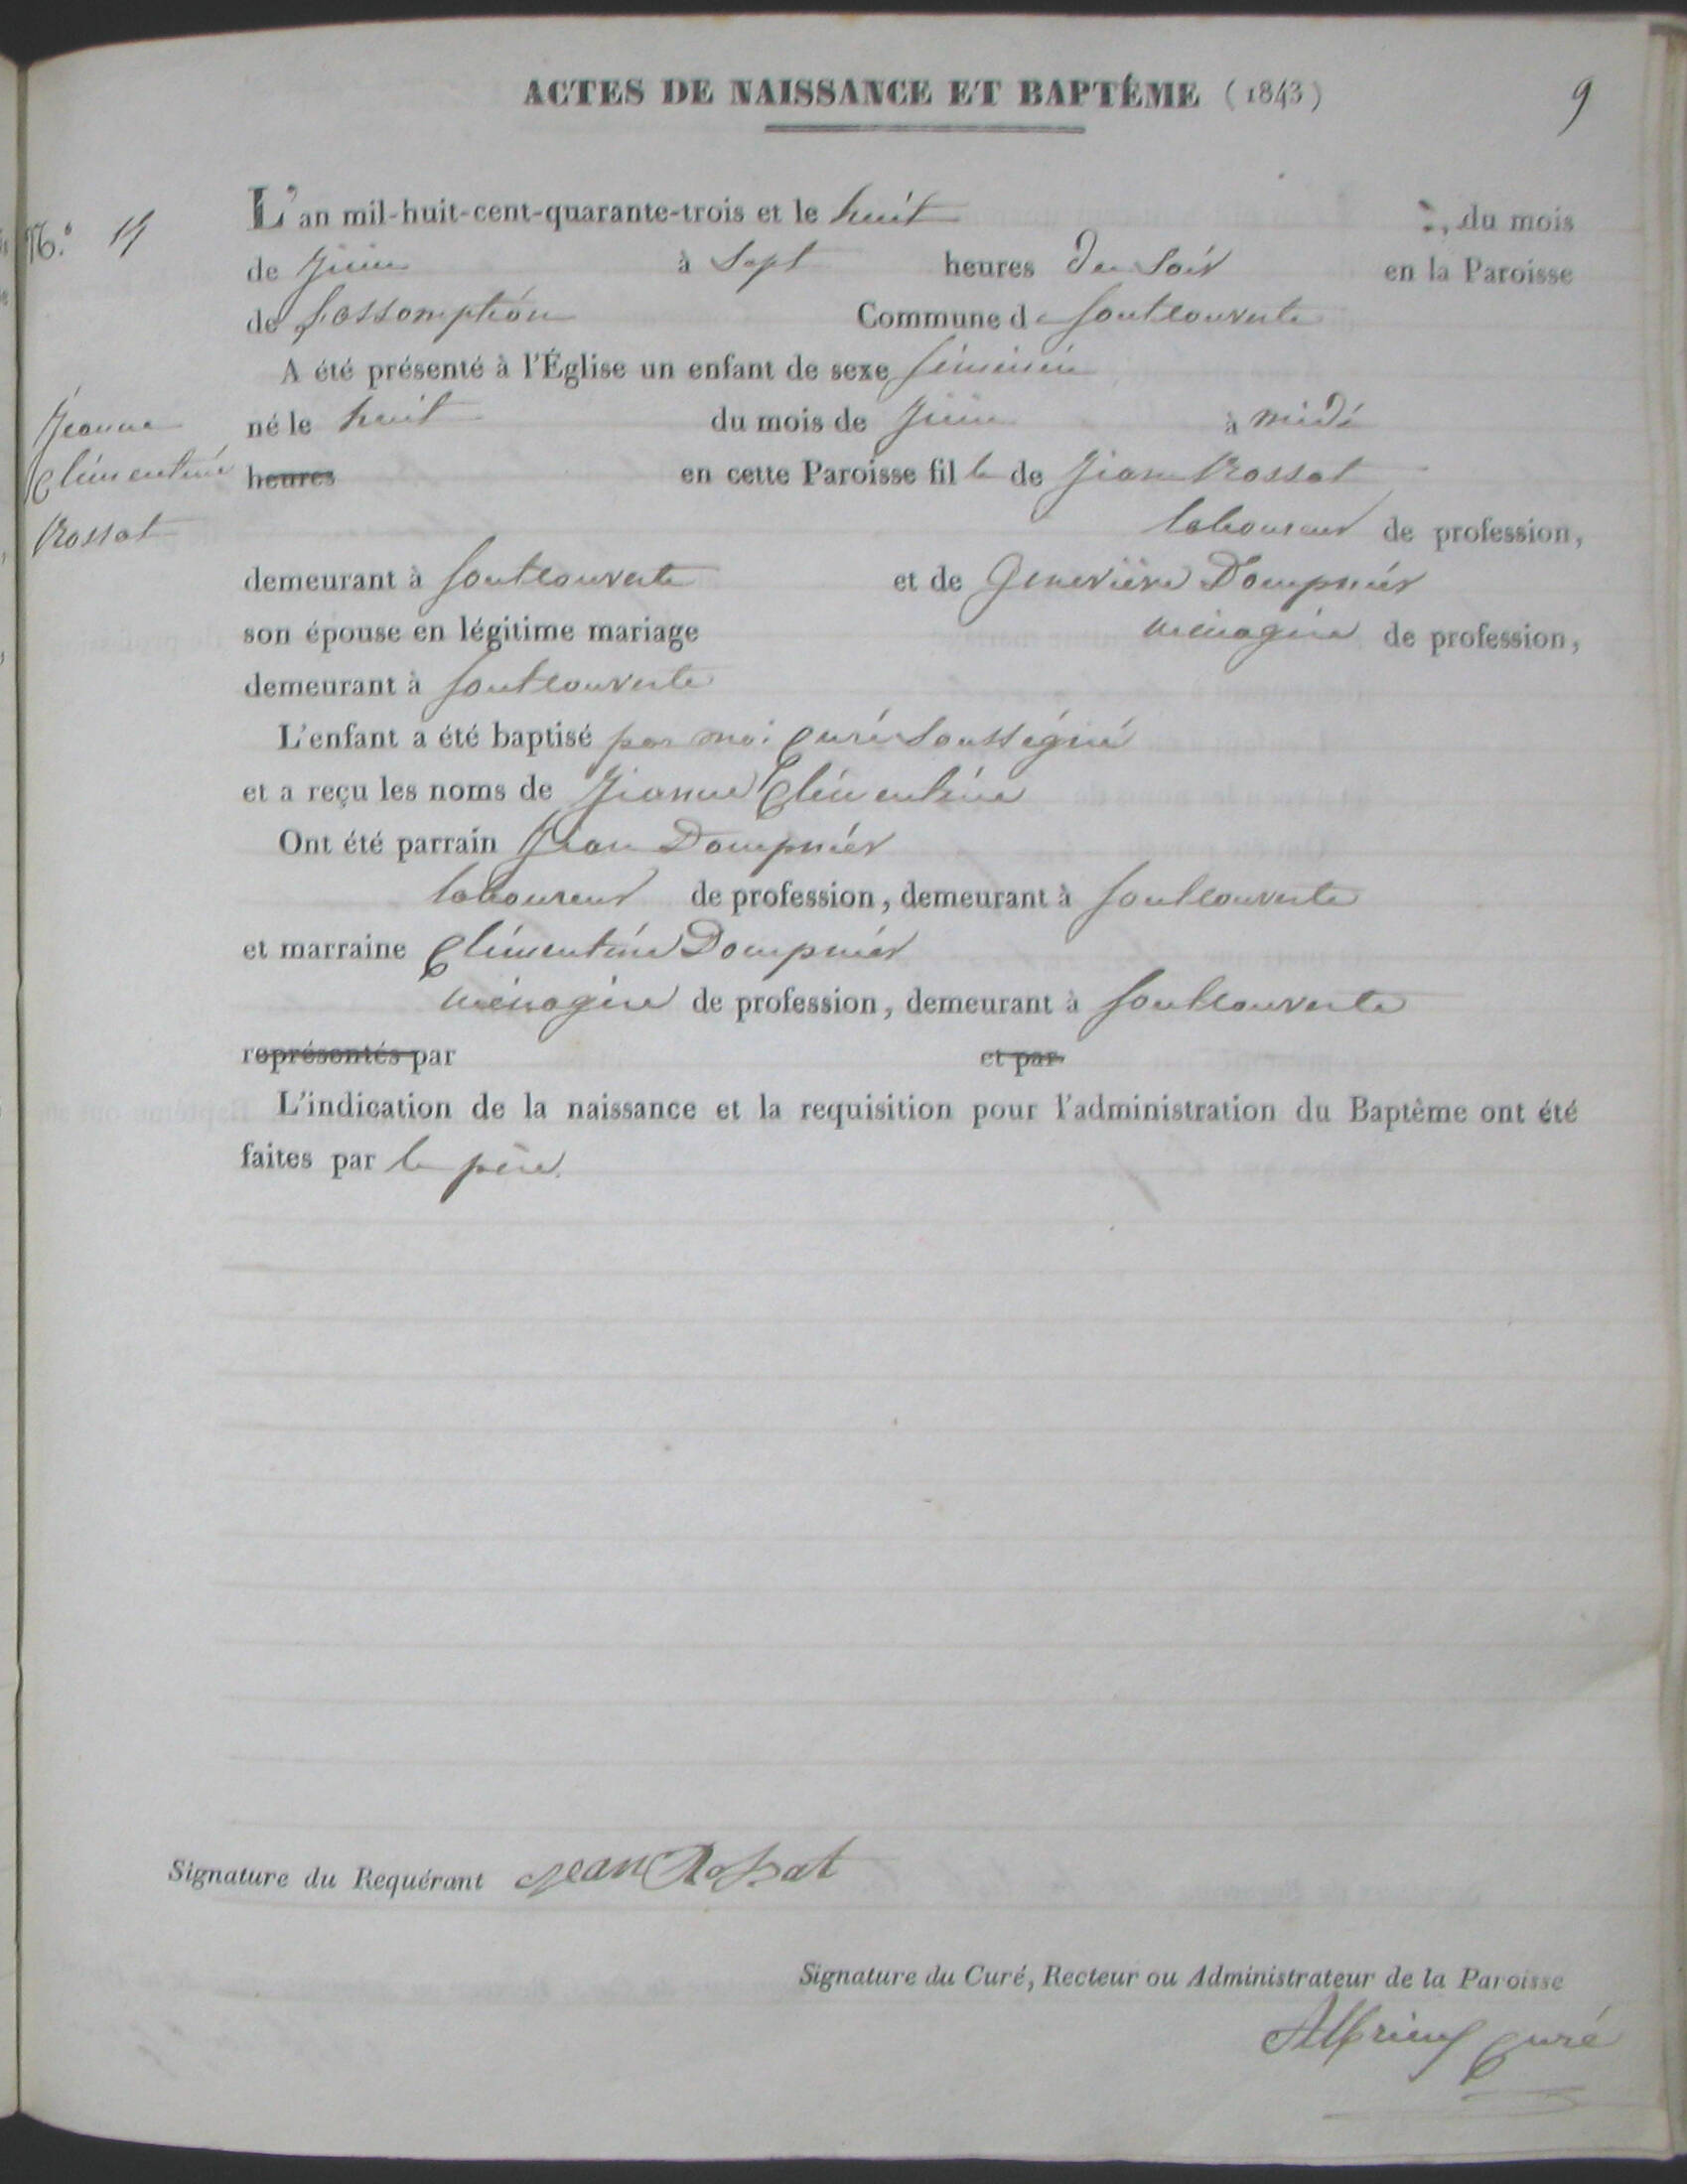 ACTES DE NAISSANCE ET BAPTÊME (1843) 9
N.º
L'an mil-huit-cent-quarante-trois et le huit du mois
de Juin à Sept heures du Soir en la Paroisse
de L'assomption Commune de Fontcouverte
A été présenté à l'Église un enfant de sexe féminin
né le huit du mois de Juin à midi
heures en cette Paroisse fille de Jean Rossat
laboureur de profession,
demeurant à Fontcouverte et de Geneviève Dompnier
son épouse en légitime mariage ménagère de profession,
demeurant à Fontcouverte
Jeanne
Clémentine
Rossat
L'enfant a été baptisé par moi curé Soussigné
et a reçu les noms de Jeanne Clémentine
Ont été parrain Jean Dompnier
laboureur de profession, demeurant à Fontcouverte
et marraine Clémentine Dompnier
ménagère de profession, demeurant à Fontcouverte
représentés par et par
L'indication de la naissance et la requisition pour l'administration du Baptême ont été
faites par le père.
Signature du Requérant Jean Rossat
Signature du Curé, Recteur ou Administrateur de la Paroisse
curé